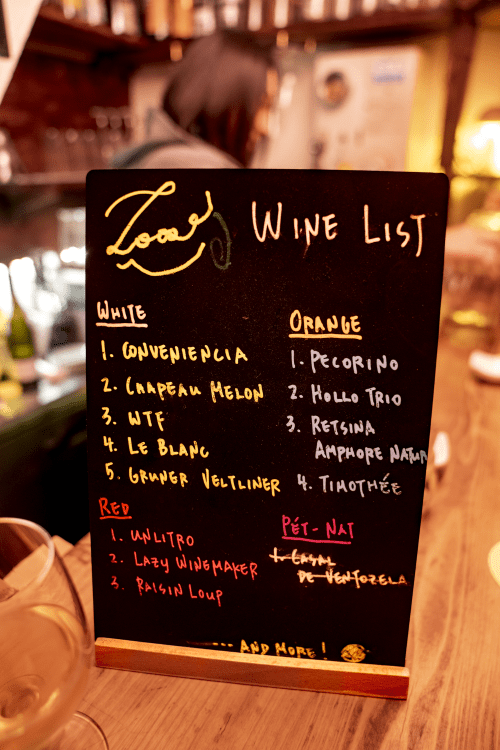 Wine List
White
1. Conveniencia
2. Chapeau Melon
3. WTF
4. Le Blanc
5. Gruner Veltliner
Orange
1. Pecorino
2. Hollo Trio
3. Retsina
Amphore Natur
4. Timothée
Red
1. Unlitro
2. Lazy Winemaker
3. Raisin Loup
Pét-Nat
1. Casal
de Ventozela
... And More!